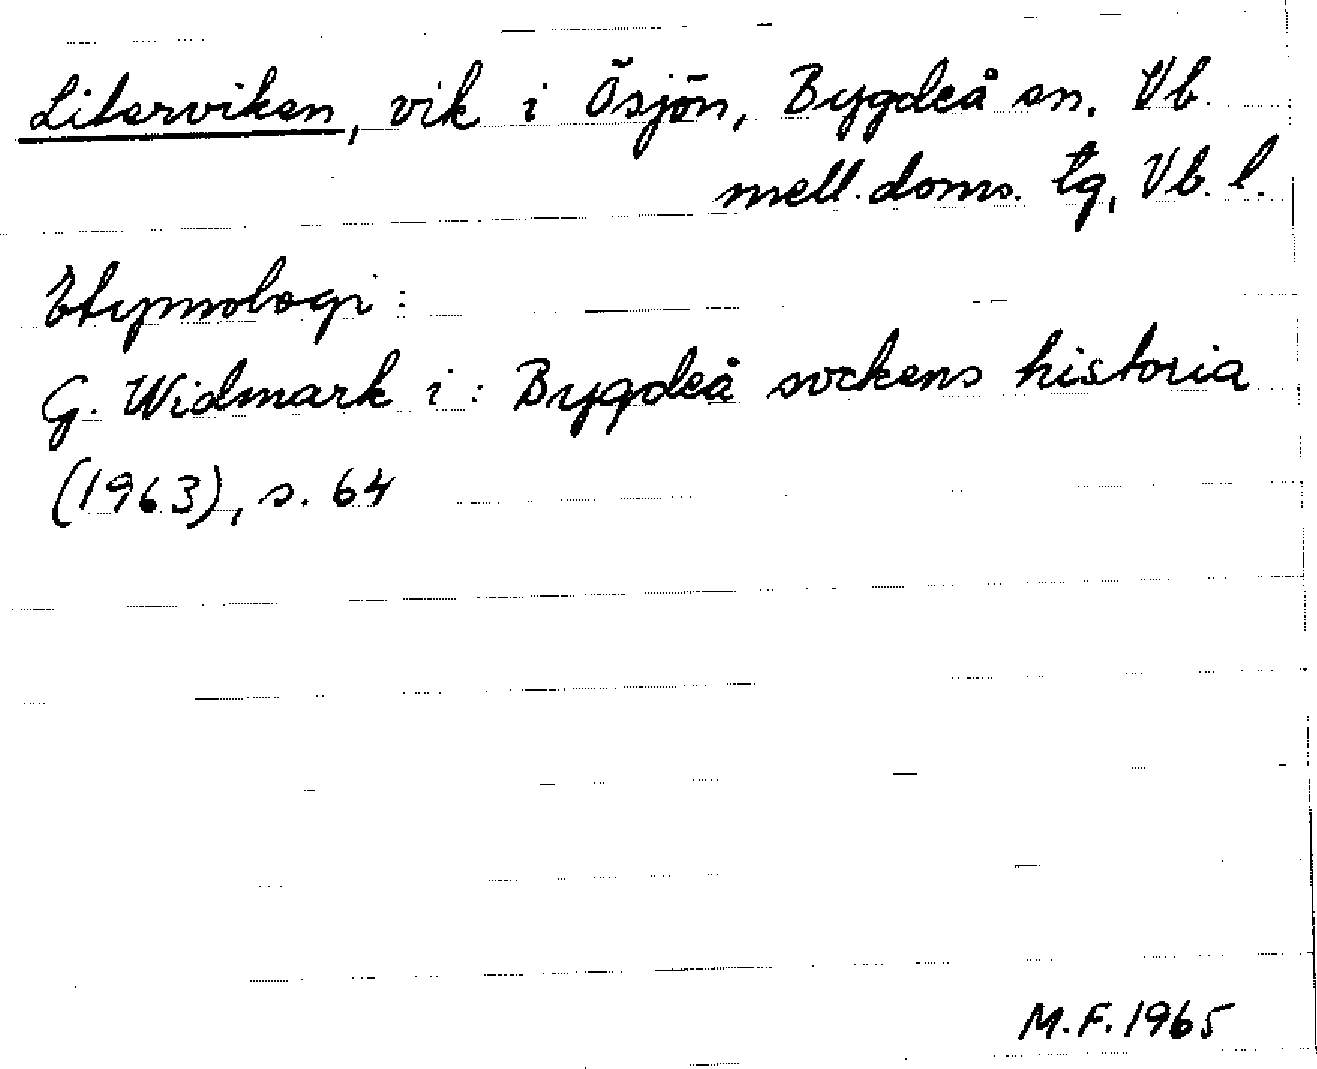 Literviken, vik i Ösjön, Bygdeå sn. Vb
mell. doms. tg, Vb. l.
Etymologi:
G. Widmark i: Bygdeå sockens historia
(1963), s. 64
M.F. 1965